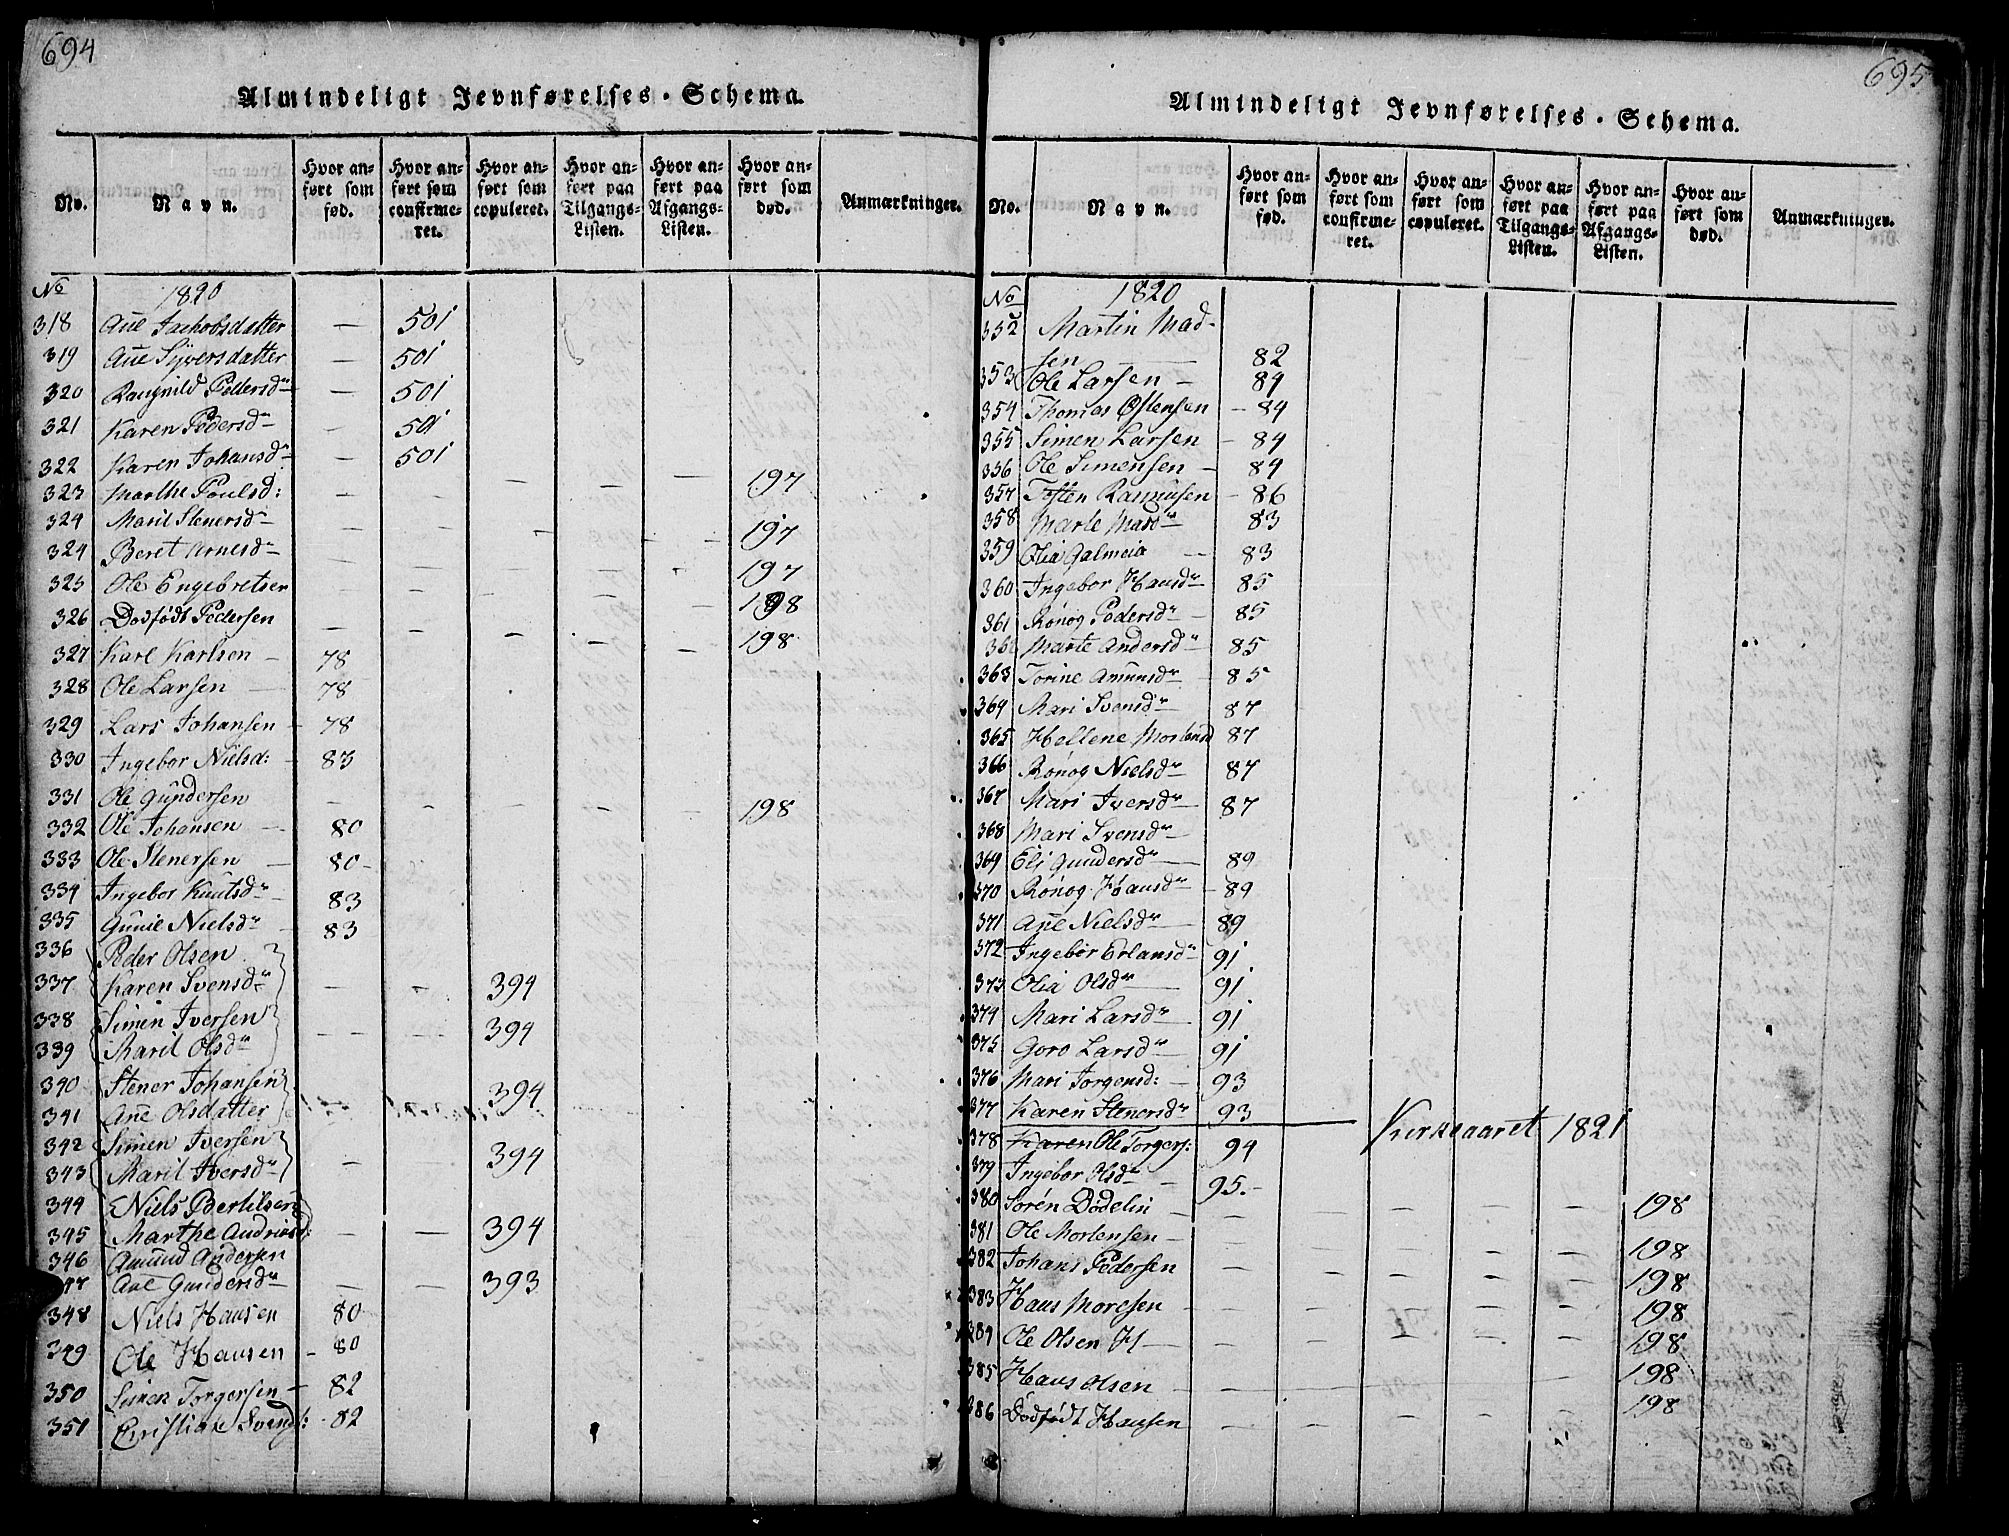 694
Almindeligt Jevnførelses-Schema.
No.
Navn.
Hvor anført som fød.
Hvor anført som confirmeret.
Hvor anført som copuleret.
Hvor anført paa Tilgangs-Listen.
Hvor anført paa Afgangs-Listen.
Hvor anført som død.
Anmærkninger.
No 1820
318 Ane Jachobsdatter — 501
319 Ane Syversdatter — 501
320 Rangnild Pedersdr — 501
321 Karen Pedersd — 501
322 Karen Johansdr — 501
323 Marthe Poulsd: 197
324 Marit Stenersdr 197
324 Beret Arnesdr 197
325 Ole Engebretsen 198
326 Dødfødt Pedersen 198
327 Karl Karlsen — 78
328 Ole Larsen — 78
329 Lars Johansen — 78
330 Ingebor Nielsd: — 83
331 Ole Gundersen 198
332 Ole Johansen — 80
333 Ole Stenersen — 80
334 Ingebor Knutsdr 83
335 Gunie Nielsdr 83
336 Peder Olsen
337 Karen Svensdr — — 394
338 Simen Iversen
339 Marit Olsdr — — 394
340 Stener Johansen
341 Ane Olsdatter 394
342 Simen Iversen
343 Marit Iversdr — 394
344 Niels Bertilsen
345 Marthe Andriasd: — — 394
346 Amund Andersen
347 Ane Gundersdr — — 393
348 Niels Hansen 80
349 Ole Hansen — 80
350 Simen Torgersen — 82
351 Christian Svends: 82
695
Almindeligt Jevnførelses-Schema.
No.
Navn.
Hvor anført som fød.
Hvor anført som confirmeret.
Hvor anført som copuleret.
Hvor anført paa Tilgangs-Listen.
Hvor anført paa Afgangs-Listen.
Hvor anført som død.
Anmærkninger.
No 1820
352 Martin Mad-
sen — 82
353 Ole Larsen — 84
354 Thomas Østensen — 84
355 Simen Larsen — 84
356 Ole Simensen — 84
357 Tosten Rasmusen — 86
358 Marte Madsdr 83
359 Olia Galmeia — 83
360 Ingebor Hansdr 85
361 Rønog Pedersdr — 85
362 Marte Andersdr 85
363 Torine Amunsdr — 85
364 Mari Svensdr 87
365 Hellene Mortensd 87
366 Rønog Nielsdr 87
367 Mari Iversdr 87
368 Mari Svensdr
369 Eli Gundersdr 89
370 Rønog Hansdr — 89
371 Ane Nielsdr 89
372 Ingebor Erlansdr 91
373 Olia Olsdr 91
374 Mari Larsdr 91
375 Goro Larsdr 91
376 Mari Jorgensd: — 93
377 Karen Stenersdr 93
Kirkeaaret 1821
378 Karen Ole Torgers: 94
379 Ingebor Olsdr 95.-
380 Sorén Dødelin 198
381 Ole Mortensen 198
382 Johans Pedersen 198
383 Hans Moresen 198
384 Ole Olsen H 198
385 Hans Olsen 198
386 Dødfødt Hansen 198